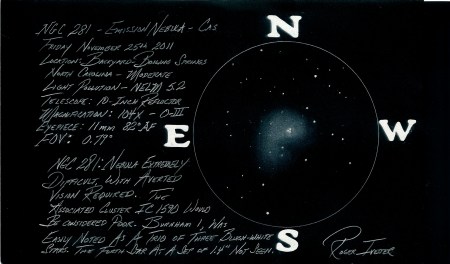 NGC 281 - Emission Nebula - Cas
Friday November 25th 2011
Location: Backyard-Boiling Springs
North Carolina - Moderate
Light Pollution - NELM 5.2
Telescope: 10-Inch Reflector
Magnification: 104X - O-III
Eyepiece: 11mm 82° AF
FOV: 0.79°
NGC 281: Nebula Extremely
Difficult With Averted
Vision Required. The
Associated Cluster IC 1590 Would
Be Considered Poor. Burnham 1, Was
Easily Noted As A Trio of Three Bluish-White
Stars. The Forth Star At A Sep. of 1.4" Not Seen.
N
E
W
S
Roger Ivester